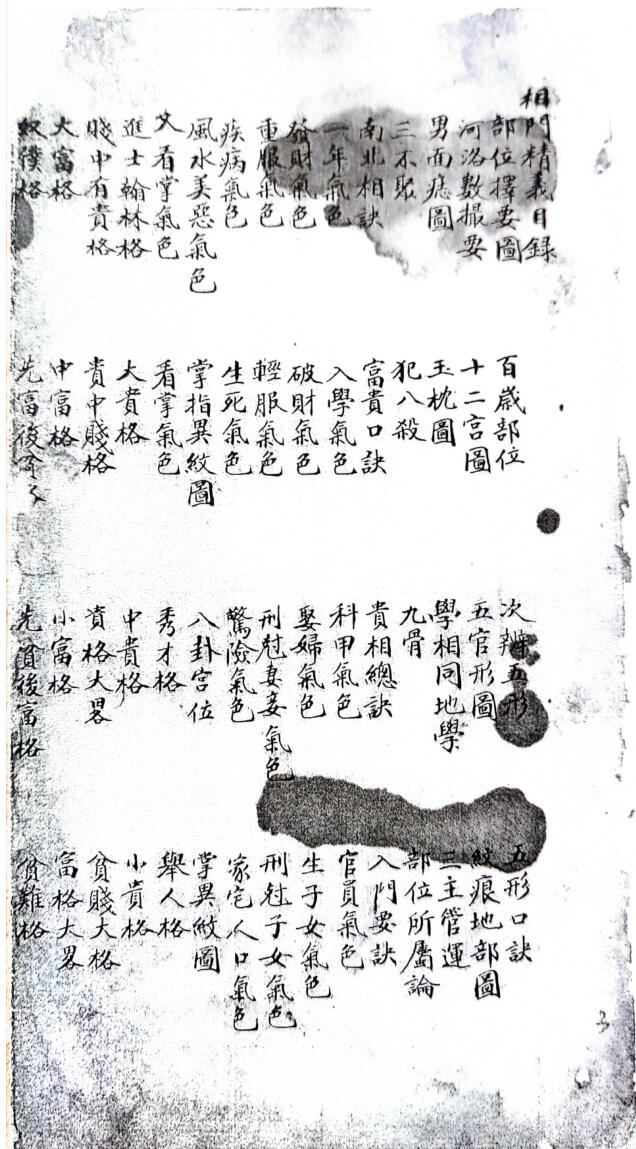 相門精義目録
部位擇要圖 百歲部位 次辨五形 五形口訣
河洛數撮要 十二宮圖 五官形圖 紋痕地部圖
男面痣圖 玉枕圖 學相同地學 三主管運
三不聚 犯八殺 九骨 部位所屬論
南北相訣 富貴口訣 貴相總訣 入門要訣
一年氣色 入學氣色 科甲氣色 官員氣色
發財氣色 破財氣色 娶婦氣色 生子女氣色
重服氣色 輕服氣色 刑尅妻妾氣色 刑尅子女氣色
疾病氣色 生死氣色 驚險氣色 家宅人口氣色
風水美惡氣色 掌指異紋圖 八卦宮位 掌異紋圖
又看掌氣色 看掌氣色 秀才格 舉人格
進士翰林格 大貴格 中貴格 小貴格
賤中有貴格 貴中賤格 資格大畧 貧賤大格
大富格 中富格 小富格 富格大畧
奴僕格 先富後 先貧後富格 貧難格
3